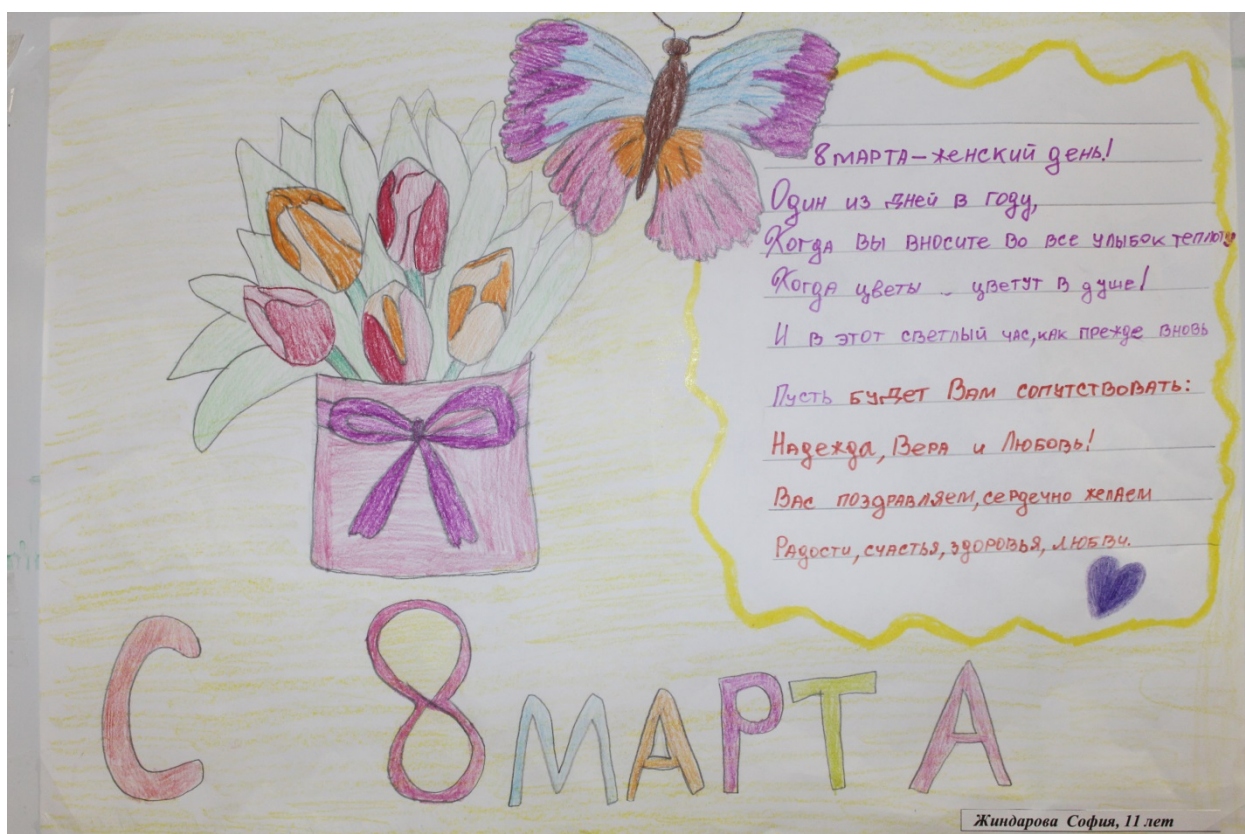 8 МАРТА – женский день!
Один из дней в году,
Когда Вы вносите во все улыбок теплоту
Когда цветы – цветут в душе!
И в этот светлый час, как прежде вновь
Пусть будет Вам сопутствовать:
Надежда, Вера и Любовь!
Вас поздравляем, сердечно желаем
Радости, счастья, здоровья, любви.
С 8 МАРТА
Жиндарова София, 11 лет